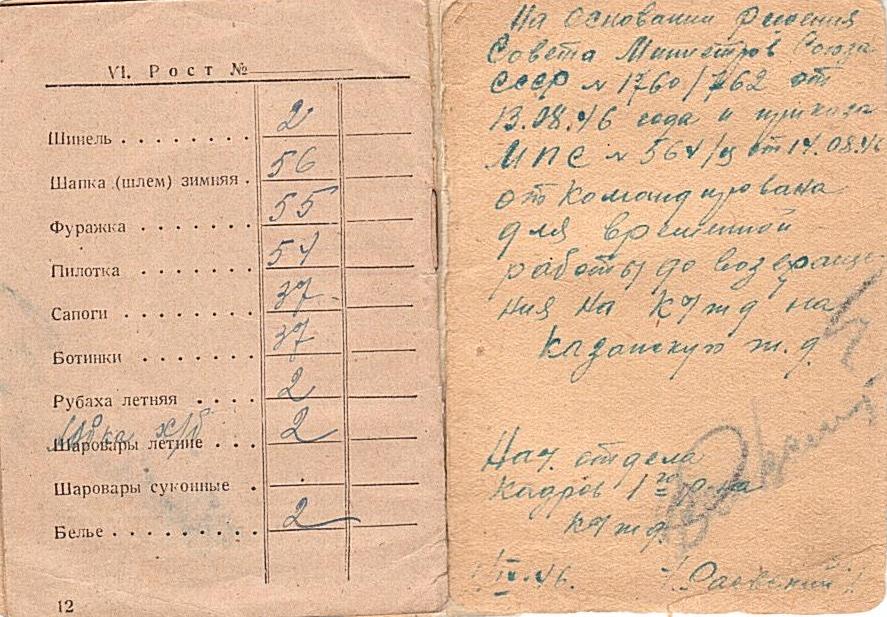 VI. Рост №
Шинель 2
Шапка (шлем) зимняя 56
Фуражка 55
Пилотка 54
Сапоги 37
Ботинки 37
Рубаха летняя 2
Юбка х/б
Шаровары летние 2
Шаровары суконные
Белье 2
12
На основании Решения
Совета Министров Союза
СССР № 1760/762 от
13.08.46 года и приказа
МПС № 564/ц от 14.08.46
откомандирована
для временной
работы до возвраще-
ния на КЧжд на
Казанскую ж.д.
Нач. отдела
Кадров 1го р-на
КЧжд
IX.46. Раевский